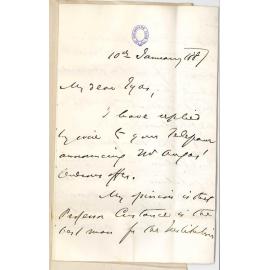 10th January 1887
My dear
I have replied
by wire to your Telegram
announcing Mr Angas'
generous offer.
My opinion is that
Professor is the
best man for the Institution